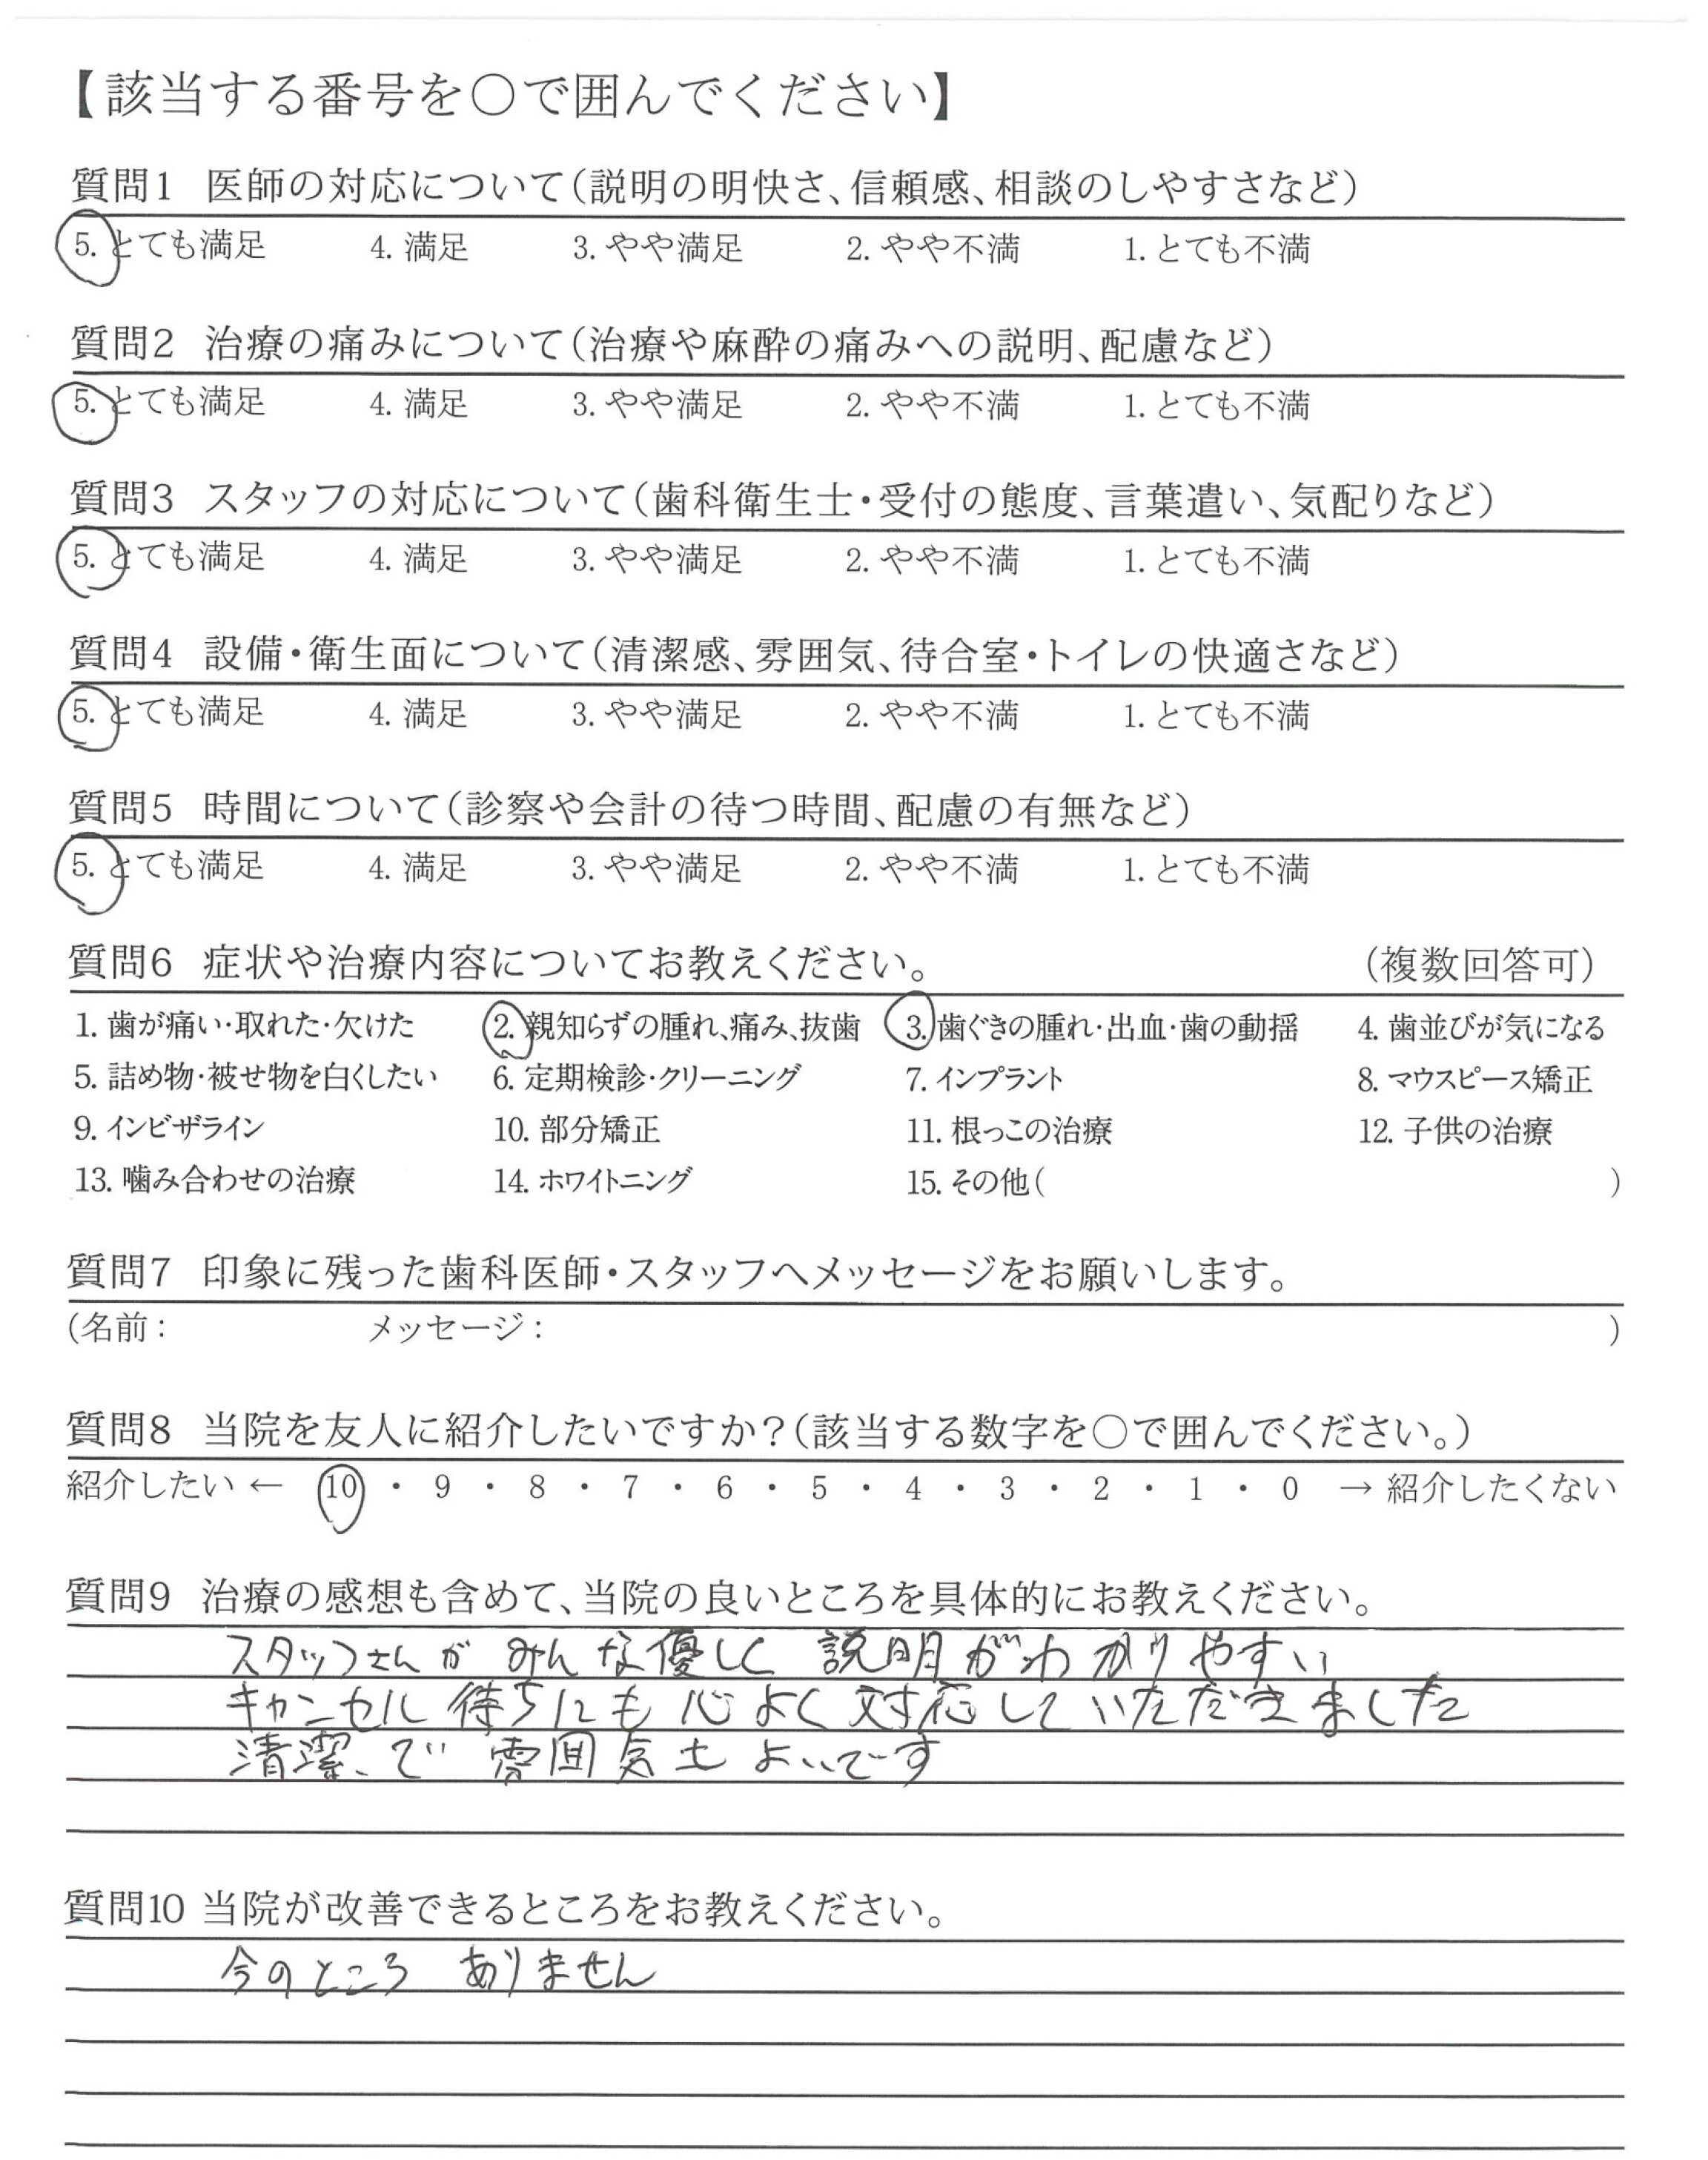 【該当する番号を○で囲んでください】
質問1 医師の対応について(説明の明快さ、信頼感、相談のしやすさなど)
5. とても満足 4. 満足 3. やや満足 2. やや不満 1. とても不満
質問2 治療の痛みについて(治療や麻酔の痛みへの説明、配慮など)
5. とても満足 4. 満足 3. やや満足 2. やや不満 1. とても不満
質問3 スタッフの対応について(歯科衛生士・受付の態度、言葉遣い、気配りなど)
5. とても満足 4. 満足 3. やや満足 2. やや不満 1. とても不満
質問4 設備・衛生面について(清潔感、雰囲気、待合室・トイレの快適さなど)
5. とても満足 4. 満足 3. やや満足 2. やや不満 1. とても不満
質問5 時間について(診察や会計の待つ時間、配慮の有無など)
5. とても満足 4. 満足 3. やや満足 2. やや不満 1. とても不満
質問6 症状や治療内容についてお教えください。 (複数回答可)
1. 歯が痛い・取れた・欠けた 2. 親知らずの腫れ、痛み、抜歯 3. 歯ぐきの腫れ・出血・歯の動揺 4. 歯並びが気になる
5. 詰め物・被せ物を白くしたい 6. 定期検診・クリーニング 7. インプラント 8. マウスピース矯正
9. インビザライン 10. 部分矯正 11. 根っこの治療 12. 子供の治療
13. 噛み合わせの治療 14. ホワイトニング 15. その他( )
質問7 印象に残った歯科医師・スタッフへメッセージをお願いします。
(名前: メッセージ: )
質問8 当院を友人に紹介したいですか?(該当する数字を○で囲んでください。)
紹介したい ← 10 ・ 9 ・ 8 ・ 7 ・ 6 ・ 5 ・ 4 ・ 3 ・ 2 ・ 1 ・ 0 → 紹介したくない
質問9 治療の感想も含めて、当院の良いところを具体的にお教えください。
スタッフさんが みんな優しく 説明がわかりやすい
キャンセル待ちにも心よく対応していただきました
清潔で 雰囲気もよいです
質問10 当院が改善できるところをお教えください。
今のところ ありません